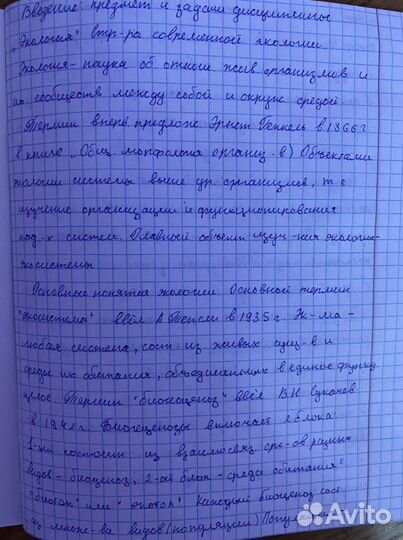 Введение: предмет и задачи дисциплины
"Экология" стр-ра современной экологии
Экология - наука об отнош. жив организмов и
их сообществ между собой и окруж средой
Термин вперв предлож Эрнст Геккель в 1866 г
в книге "Общ. морфология организ-в) Объектами
экологии системы выше ур организмов, т е
изучение организации и функционирования
над-х систем. Главный объект изуч-ния экологии-
экосистемы
Основные понятия экологии Основной термин
"экосистема" ввёл А Тенсли в 1935 г Эк-ма-
любая система, сост. из живых сущ-в и
среды их обитания, объединённых в единое функц.
целое Термин "биогеоценоз" ввёл В.Н Сукачёв
в 1942 г. Биогеценозы включает 2 блока:
1-ый состоит из взаимосвяз. ор-ов разных
видов - биоценоз, 2-ой блок - среда обитания"
"биотоп" или "экотоп" Каждый биоценоз сост
из множ-ва видов (популяции)
Avito